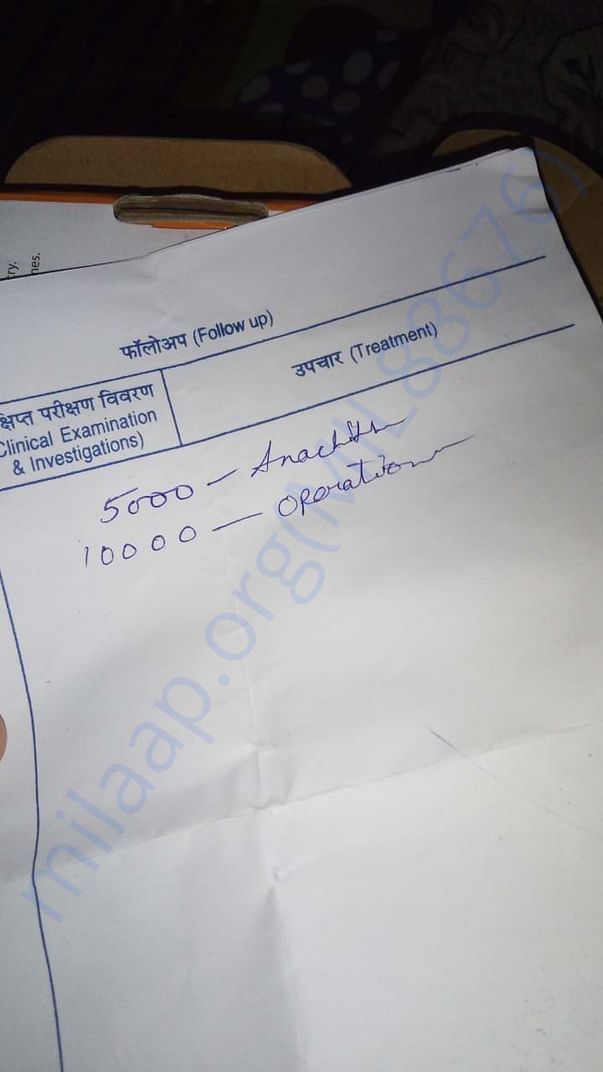 ry.
nes.
फॉलोअप (Follow up)
क्षिप्त परीक्षण विवरण
Clinical Examination
& Investigations)
उपचार (Treatment)
5000 —
10000 — Operation
milaap.org(MIL88676)